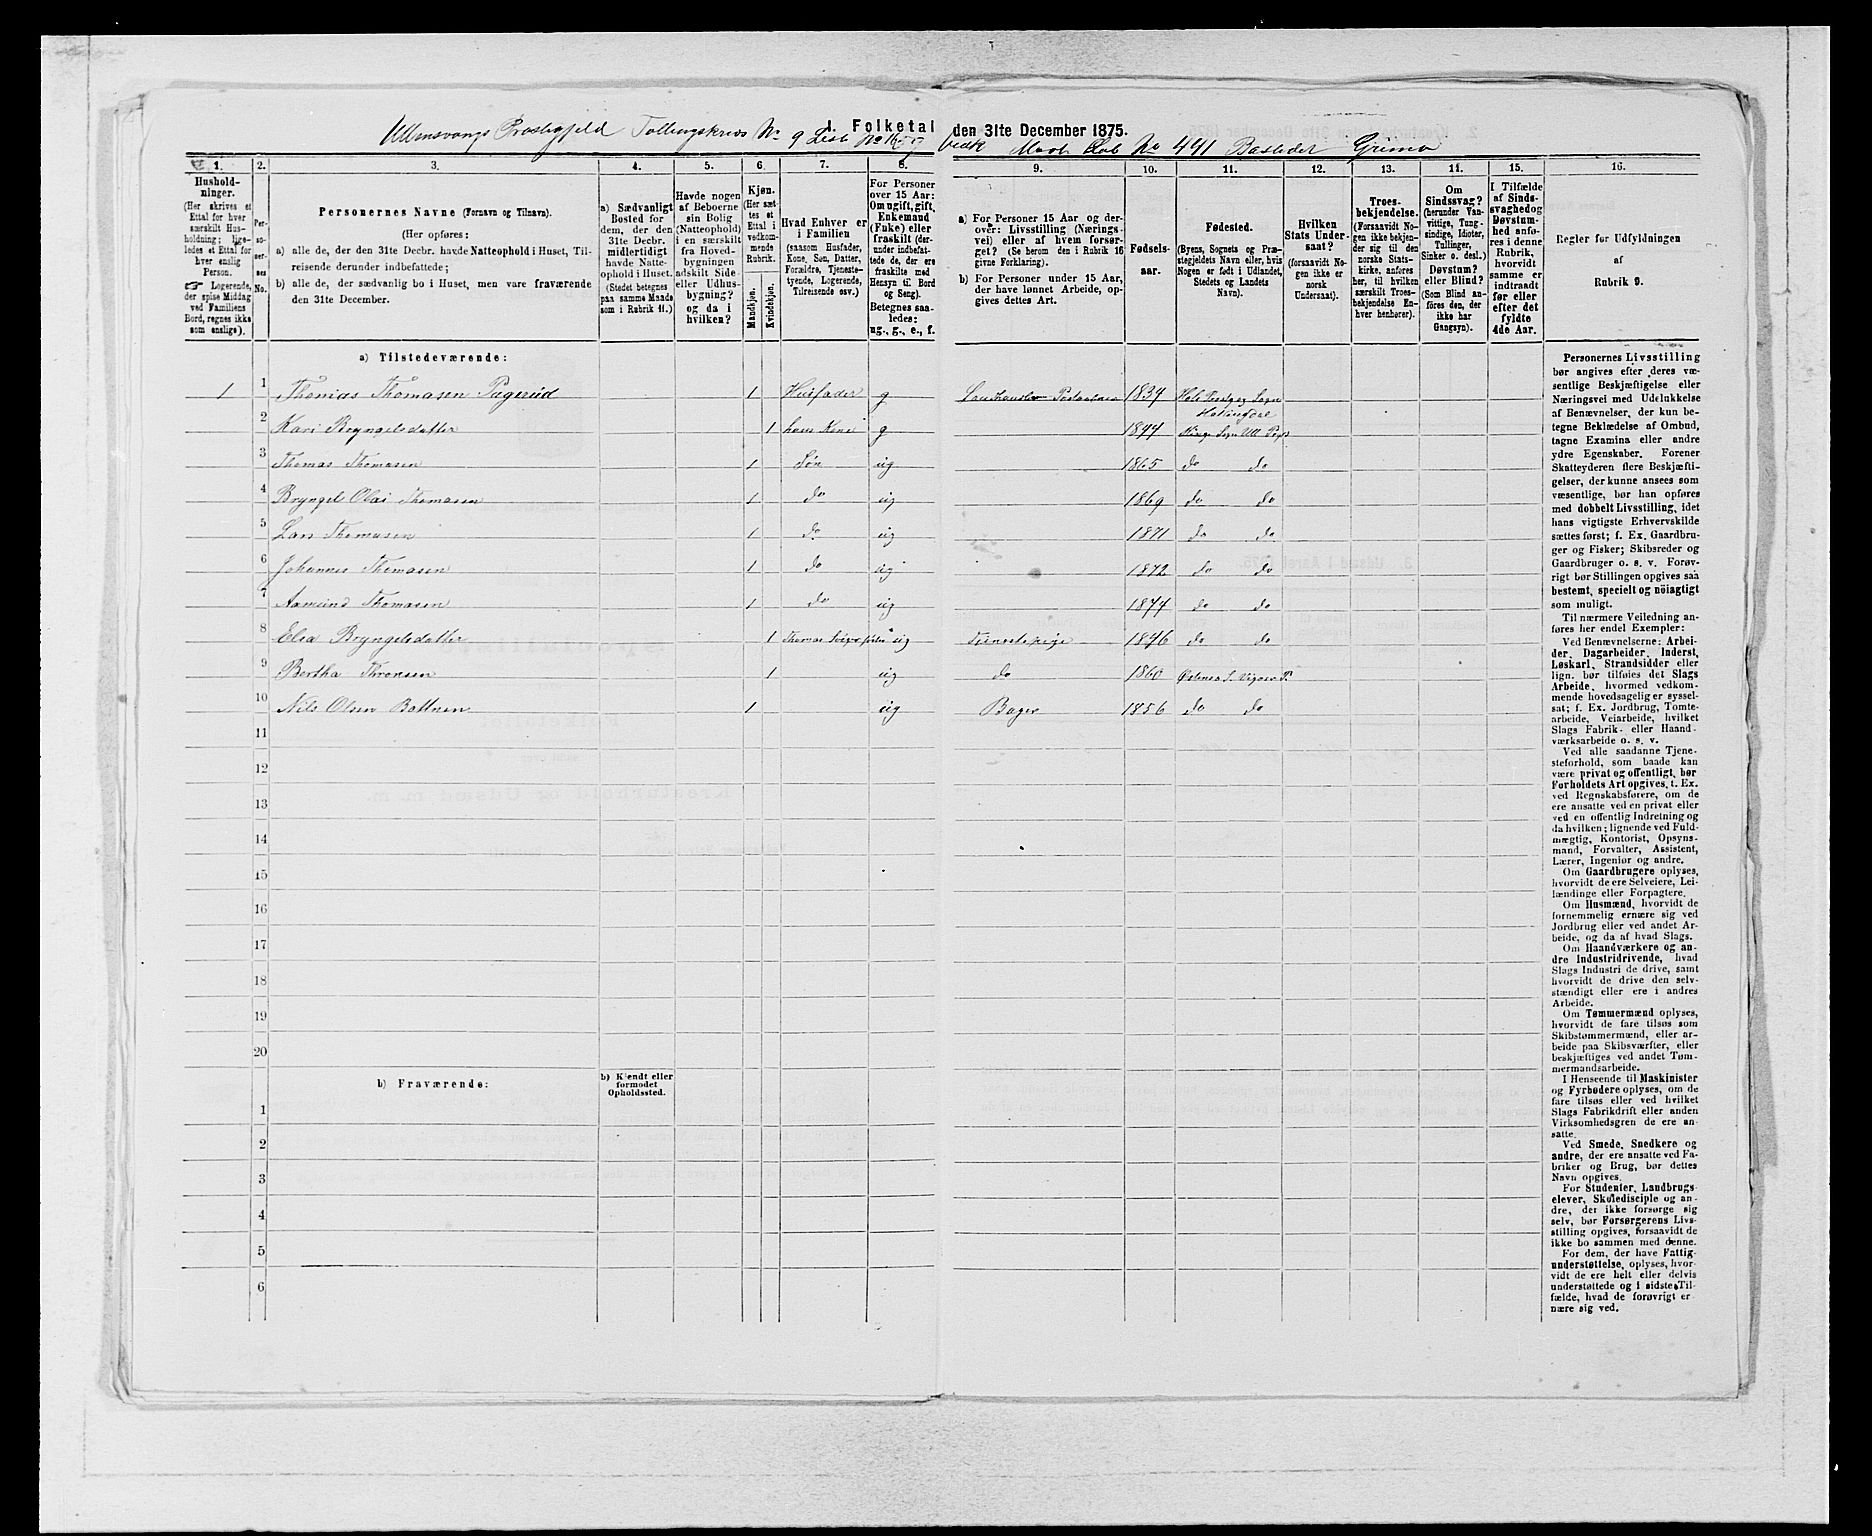 I. Folketal den 31te December 1875.
Ullensvangs Præstegjeld Tællingskreds No 9 Liste No Matr. Løb No 491 Bosteder Grimo
1. 2. 3. 4. 5. 6. 7. 8. 9. 10. 11. 12. 13. 14. 15. 16.
Hushold-
ninger.
(Her skrives et
Ettal for hver
særskilt Hus-
holdning; lige-
ledes et Ettal for
hver enslig
Person.
Logerende,
der spise Middag
ved Familiens
Bord, regnes ikke
som enslige).
Per-
so-
ner-
nes
No.
Personernes Navne (Fornavn og Tilnavn).
(Her opføres:
a) alle de, der den 31te Decbr. havde Natteophold i Huset, Til-
reisende derunder indbefattede;
b) alle de, der sædvanlig bo i Huset, men vare fraværende
den 31te December.
a) Sædvanligt
Bosted for
dem, der den
31te Decbr.
midlertidigt
havde Natte-
ophold i Huset.
(Stedet betegnes
paa samme Maade
som i Rubrik 11.)
Havde nogen
af Beboerne
sin Bolig
(Natteophold)
i en særskilt
fra Hoved-
bygningen
adskilt Side-
eller Udhus-
bygning?
og da i
hvilken?
Kjøn.
(Her sæt-
tes et
Ettal i
vedkom-
mende
Rubrik.
Mandkjøn.
Kvindekjøn.
Hvad Enhver er
i Familien
(saasom Husfader,
Kone, Søn, Datter,
Forældre, Tjeneste-
tyende, Logerende,
Tilreisende osv.)
For Personer
over 15 Aar:
Om ugift, gift,
Enkemand
(Enke) eller
fraskilt (der-
under indbefat-
tede de, der ere
fraskilte med
Hensyn til Bord
og Seng).
Betegnes saa-
ledes:
ug., g., e., f.
a) For Personer 15 Aar og der-
over: Livsstilling (Nærings-
vei) eller af hvem forsør-
get? (Se herom den i Rubrik 16
givne Forklaring).
b) For Personer under 15 Aar,
der have lønnet Arbeide, op-
gives dettes Art.
Fødsels-
aar.
Fødested.
(Byens, Sognets og Præ-
stegjeldets Navn eller, hvis
Nogen er født i Udlandet,
Stedets og Landets
Navn).
Hvilken
Stats Under-
saat?
(forsaavidt No-
gen ikke er
norsk
Undersaat).
Troes-
bekjendelse.
(Forsaavidt No-
gen ikke bekjen-
der sig til den
norske Stats-
kirke, anføres
her, til hvilken
særskilt Troes-
bekjendelse En-
hver henhører).
Om
Sindssvag?
(herunder Van-
vittige, Tung-
sindige, Idioter,
Tullinger,
Sinker o. desl.)
Døvstum?
eller Blind?
(Som Blind an-
føres den, der
ikke har
Gangsyn).
I Tilfælde
af Sinds-
svaghed og
Døvstum-
hed anfø-
res i denne
Rubrik,
hvorvidt
samme er
indtraadt
før eller
efter det
fyldte
4de Aar.
Regler for Udfyldningen
af
Rubrik 9.
a) Tilstedeværende:
1 1 Thomas Thomasen 1 Husfader g Landhandler 1834
2 Kari Bryngelsdatter 1 hans Kone g 1844
3 Thomas Thomasen 1 Søn ug 1865 do do
4 Bryngel Olai Thomasen 1 do ug 1869 do do
5 Lars Thomasen 1 do ug 1871 do do
6 Johannes Thomasen 1 do ug 1872 do do
7 Aamund Thomasen 1 do ug 1874 do do
8 Elsa Bryngelsdatter 1 ug Tjenestepige 1846 do do
9 Bertha Thronsen 1 ug do 1860
10 Nils Olsen 1 ug Bager 1856 do do
11
12
13
14
15
16
17
18
19
20
b) Fraværende:
b) Kjendt eller
formodet
Opholdssted.
1
2
3
4
5
6
Personernes Livsstilling
bør angives efter deres væ-
sentlige Beskjæftigelse eller
Næringsvei med Udelukkelse
af Benævnelser, der kun be-
tegne Beklædelse af Ombud,
tagne Examina eller andre
ydre Egenskaber. Forener
Skatteyderen flere Beskjæfti-
gelser, der kunne ansees som
væsentlige, bør han opføres
med dobbelt Livsstilling, idet
hans vigtigste Erhvervskilde
sættes først; f. Ex. Gaardbru-
ger og Fisker; Skibsreder og
Gaardbruger o. s. v. Forøv-
rigt bør Stillingen opgives saa
bestemt, specielt og nöiagtigt
som muligt.
Til nærmere Veiledning an-
føres her endel Exempler:
Ved Benævnelserne: Arbei-
der, Dagarbeider, Inderst,
Løskarl, Strandsidder eller
lign. bør tilføies det Slags
Arbeide, hvormed vedkom-
mende hovedsagelig er syssel-
sat; f. Ex. Jordbrug, Tomte-
arbeide, Veiarbeide, hvilket
Slags Fabrik- eller Haand-
værksarbeide o. s. v.
Ved alle saadanne Tjene-
steforhold, som baade kan
være privat og offentligt, bør
Forholdets Art opgives, t. Ex.
ved Regnskabsførere, om de
ere ansatte ved en privat eller
ved en offentlig Indretning og
da hvilken; lignende ved Fuld-
mægtig, Kontorist, Opsyns-
mand, Forvalter, Assistent,
Lærer, Ingeniør og andre.
Om Gaardbrugere oplyses,
hvorvidt de ere Selveiere, Lei-
lændinge eller Forpagtere.
Om Husmænd, hvorvidt de
fornemmelig ernære sig ved
Jordbrug eller ved andet Ar-
beide, og da af hvad Slags.
Om Haandværkere og an-
dre Industridrivende, hvad
Slags Industri de drive, samt
hvorvidt de drive den selv-
stændigt eller ere i andres
Arbeide.
Om Tømmermænd oplyses,
hvorvidt de fare tilsøs som
Skibstømmermænd, eller ar-
beide paa Skibsværfter, eller
beskjæftiges ved andet Tøm-
mermandsarbeide.
I Henseende til Maskinister
og Fyrbødere oplyses, om de
fare tilsøs eller ved hvilket
Slags Fabrikdrift eller anden
Virksomhedsgren de ere an-
satte.
Ved Smede, Snedkere og
andre, der ere ansatte ved Fa-
briker og Brug, bør dettes
Navn opgives.
For Studenter, Landbrugs-
elever, Skoledisciple og an-
dre, der ikke forsørge sig
selv, bør Forsørgerens Livs-
stilling opgives, forsaavidt de
ikke bo sammen med denne.
For dem, der have Fattig-
understøttelse, oplyses, hvor-
vidt de ere helt eller delvis
understøttede og i sidste Til-
fælde, hvad de forøvrigt er-
nære sig ved.